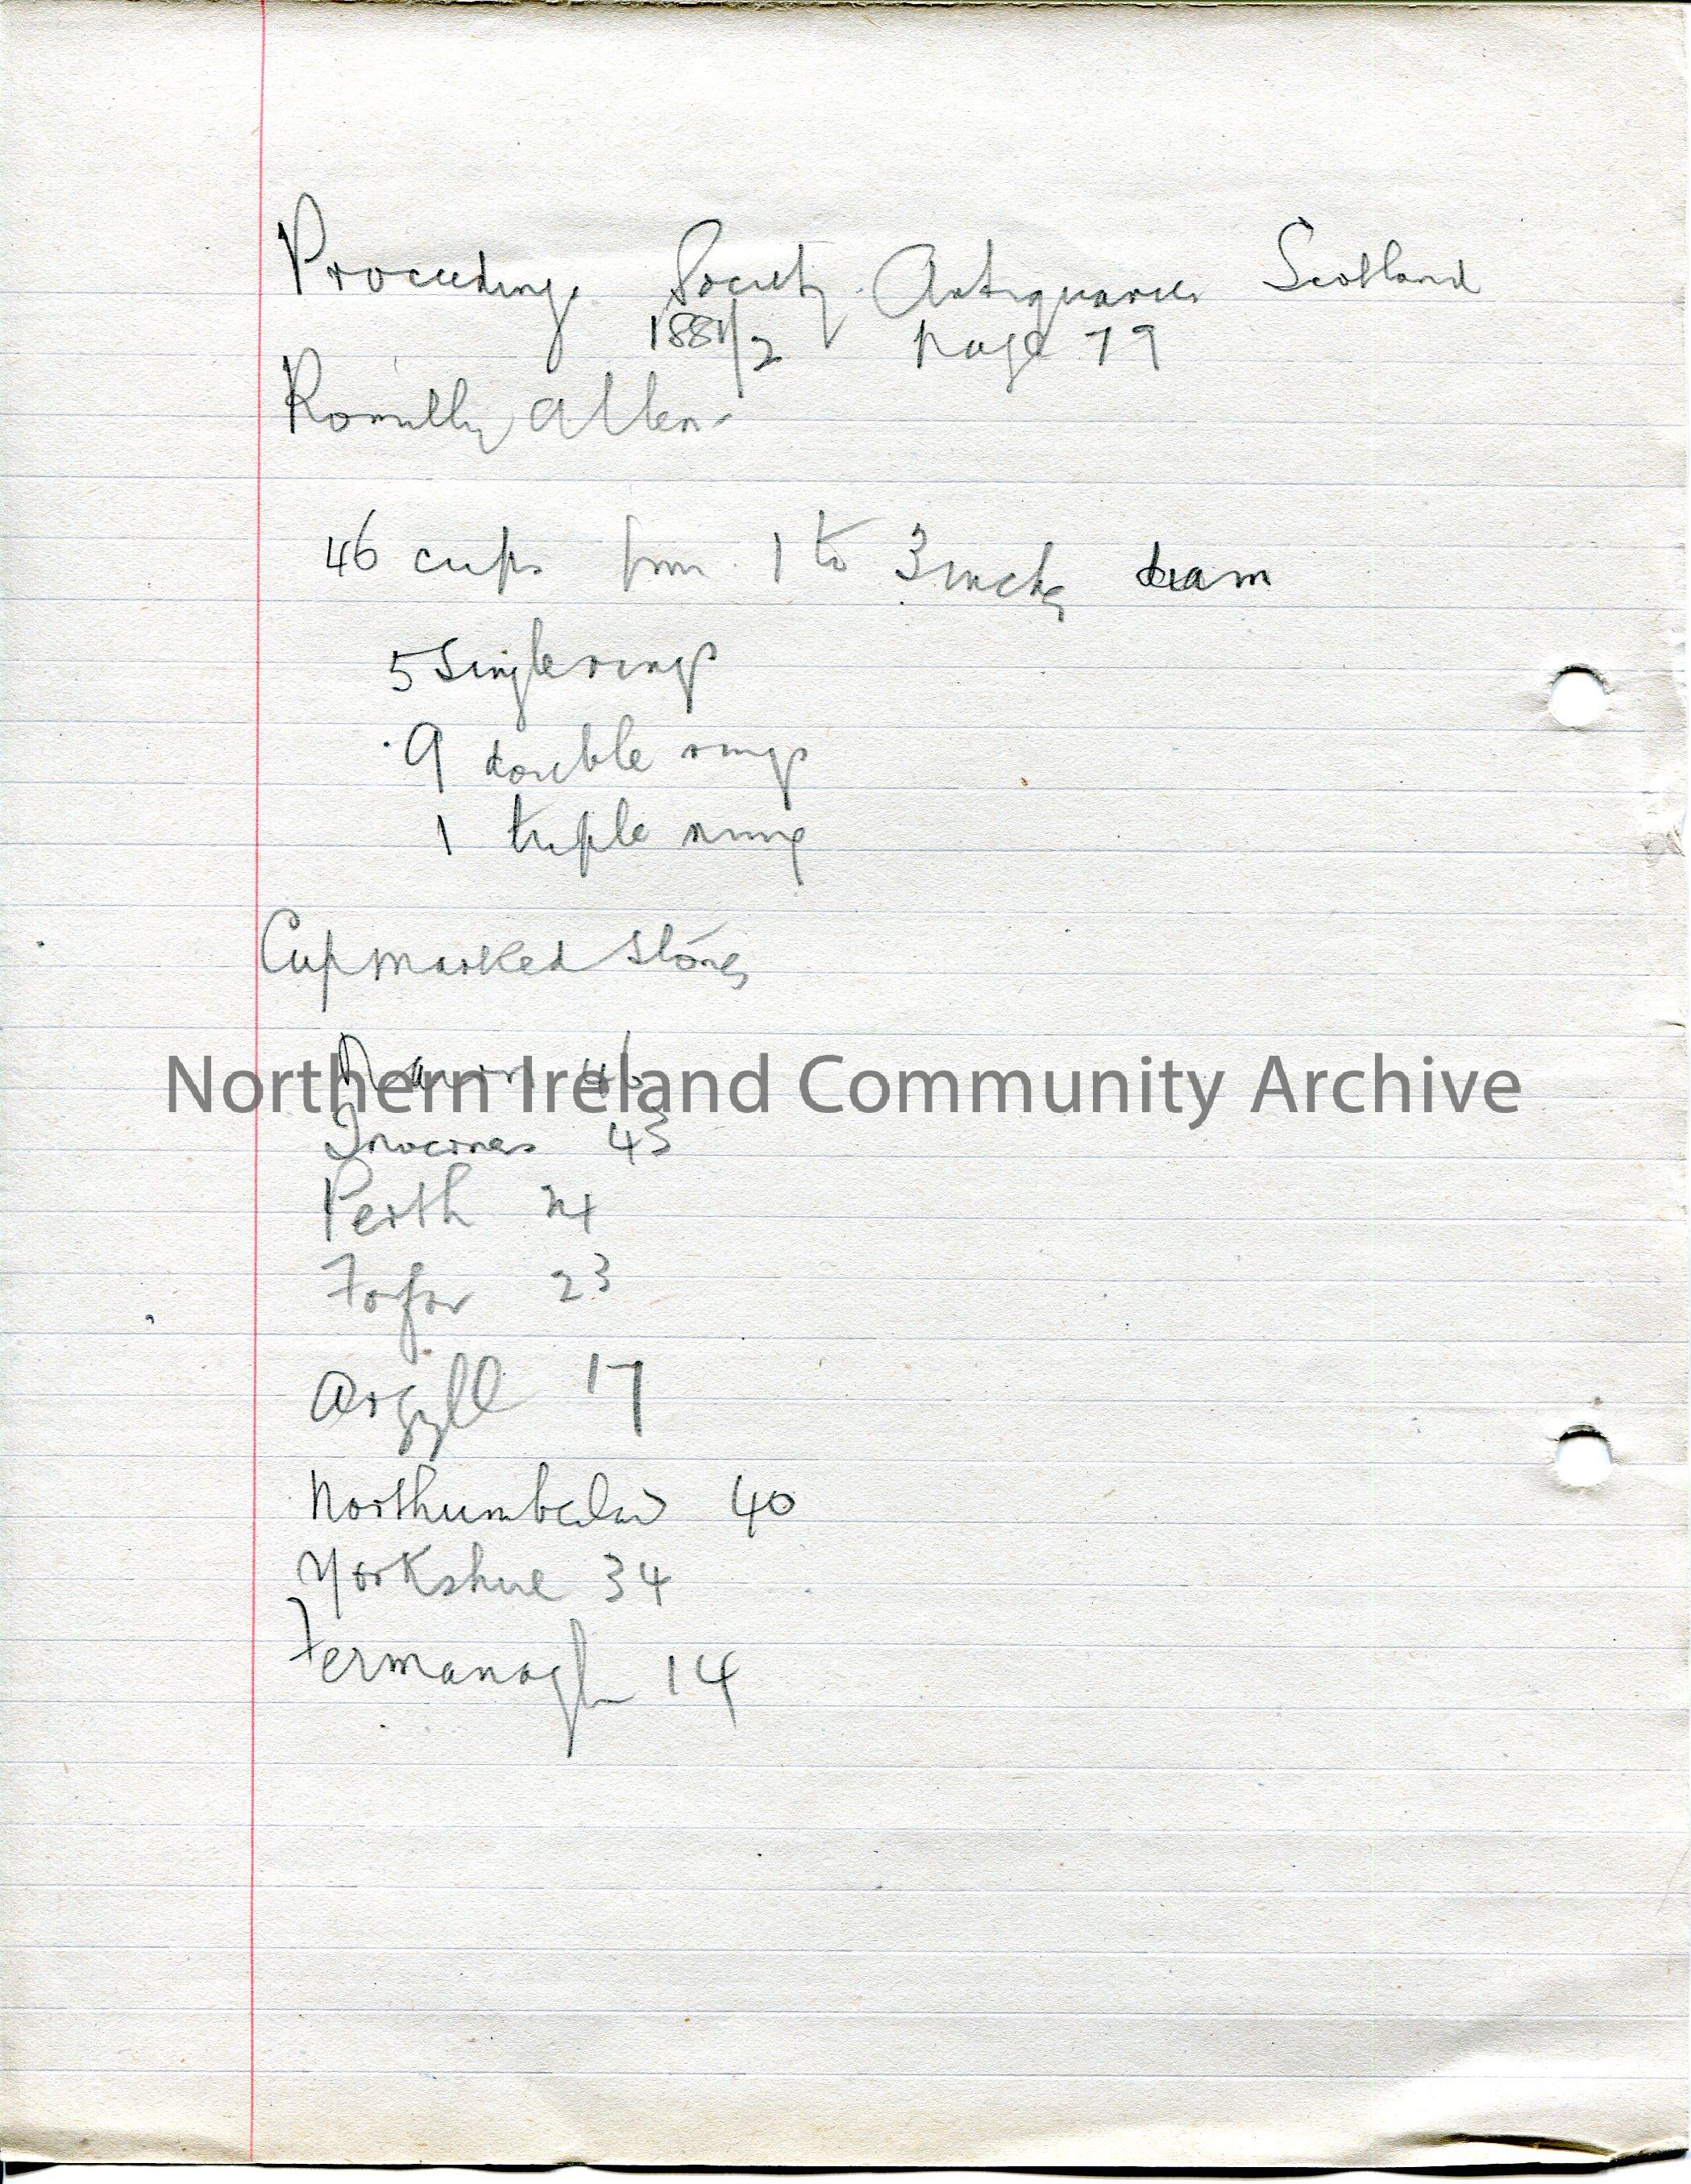 Proceedings Society Antiquaries Scotland
1881/2 page 79
Romilly Allen
46 cups from 1 to 3 inches diam
5 Single rings
9 double rings
1 triple ring
Cup marked stones
Nairn 46
Northern Ireland Community Archive
Inverness 43
Perth 24
Forfar 23
Argyll 17
Northumberland 40
Yorkshire 34
Fermanagh 14